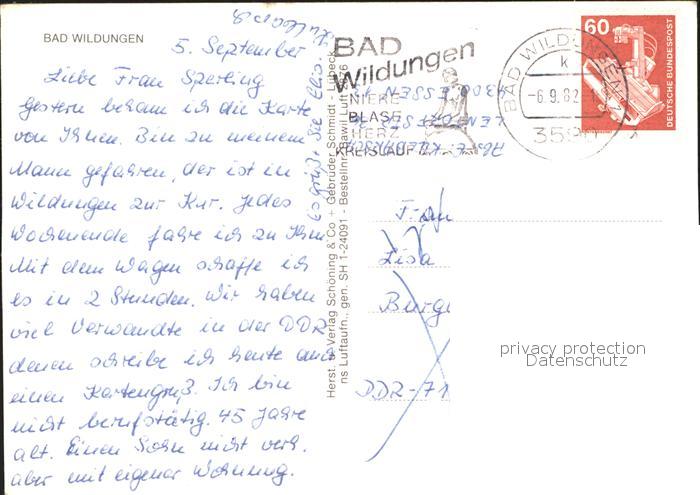 BAD WILDUNGEN
5. September
Liebe Frau Sperling
gestern bekam ich die Karte
von Ihnen. Bin zu meinem
Mann gefahren, der ist in
Wildungen zur Kur. Jedes
Wochenende fahre ich zu Ihm
Mit dem Wagen schaffe ich
es in 2 Stunden. Wir haben
viel Verwandte in der DDR
denen schreibe ich heute auch
einen Kartengruß. Ich bin
nicht berufstätig. 45 Jahre
alt. Einen Sohn nicht verh.
aber mit eigener Wohnung.
Es grüßt Sie Elis.
Herst. u. Verlag Schöning & Co + Gebrüder Schmidt - Lübeck
ns Luftaufn., gen. SH 1-24091 - Bestellnr. Bawil Luft
BAD
Wildungen
NIERE
BLASE
HERZ
KREISLAUF
4300 ESSEN 12
BAD WILDUNGEN
k
-6.9.82
3590
60
INDUSTRIE UND TECHNIK
DEUTSCHE BUNDESPOST
Frau
Lisa
Burg
DDR-71
privacy protection
Datenschutz